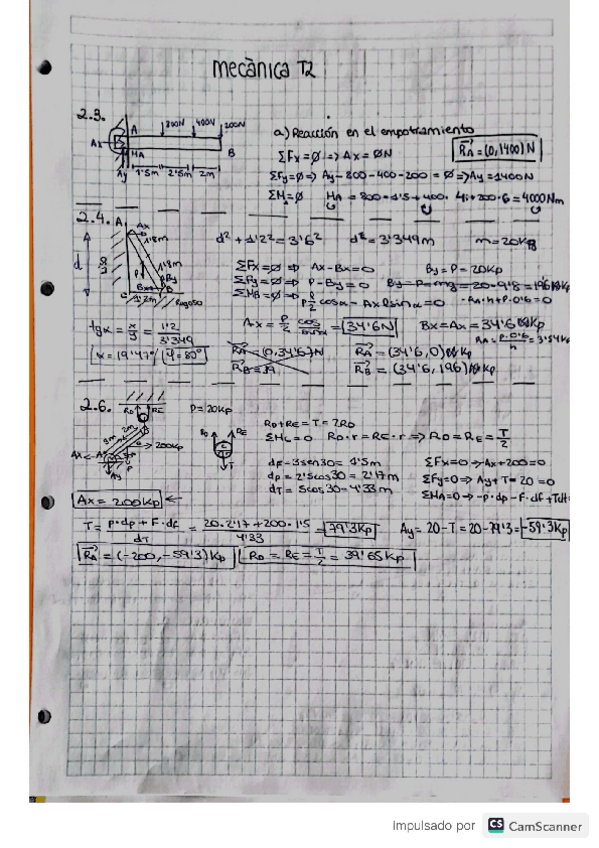 mecànica T2
2.3.
A
800N
400N
200N
Ax
MA
B
Ay
1'5m
2'5m
2m
a) Reacción en el empotramiento
ΣFx=Ø => Ax=ØN
RA = (0,1400)N
ΣFy=Ø => Ay-800-400-200=Ø => Ay=1400N
ΣMA=Ø MA = 800·1'5+400·4+200·6=4000Nm
2.4.
A
Ax
1'8m
1'8m
d
P
By
Bx
B
C
1'2m
Rugoso
d²+1'2²=3'6² d=3'349m m=20Kg
ΣFx=Ø => Ax-Bx=0 By=P=20Kp
ΣFy=Ø => P-By=0 By=P=mg=20·9'8=196
ΣMB=Ø => P l/2 cosα-Axlsinα=0 -Ax·h+P·0'6=0
tgα = x/y = 1'2/3'349
Ax = P/2 cosα/sinα = 34'6N Bx=Ax=34'6 Kp
α=19'47°
RA=(0,34'6)N
RA=(34'6,0) Kp
RB=(34'6,196) Kp
2.6.
RD RE
P=20Kp
200Kp
Ax
Ay
RD+RE=T=2RD
ΣMc=0 RD·r=RE·r => RD=RE=T/2
dF=3sen30=1'5m
dp=2'5cos30=2'17m
dT=5cos30=4'33m
ΣFx=0 => Ax+200=0
ΣFy=0 => Ay+T-20=0
ΣMA=0 => -P·dp-F·dF+TdT
Ax=200Kp
T = P·dp+F·dF/dT = 20·2'17+200·1'5/4'33 = 79'3Kp Ay=20-T=20-79'3=-59'3Kp
RA=(-200,-59'3)Kp RD=RE=T/2=39'65Kp
Impulsado por CS CamScanner